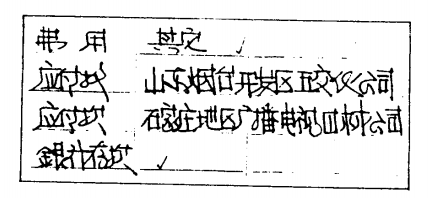 费用 其它
应付款 山东烟台开发区五交化公司
应付款 石家庄地区广播电视器材公司
银行存款